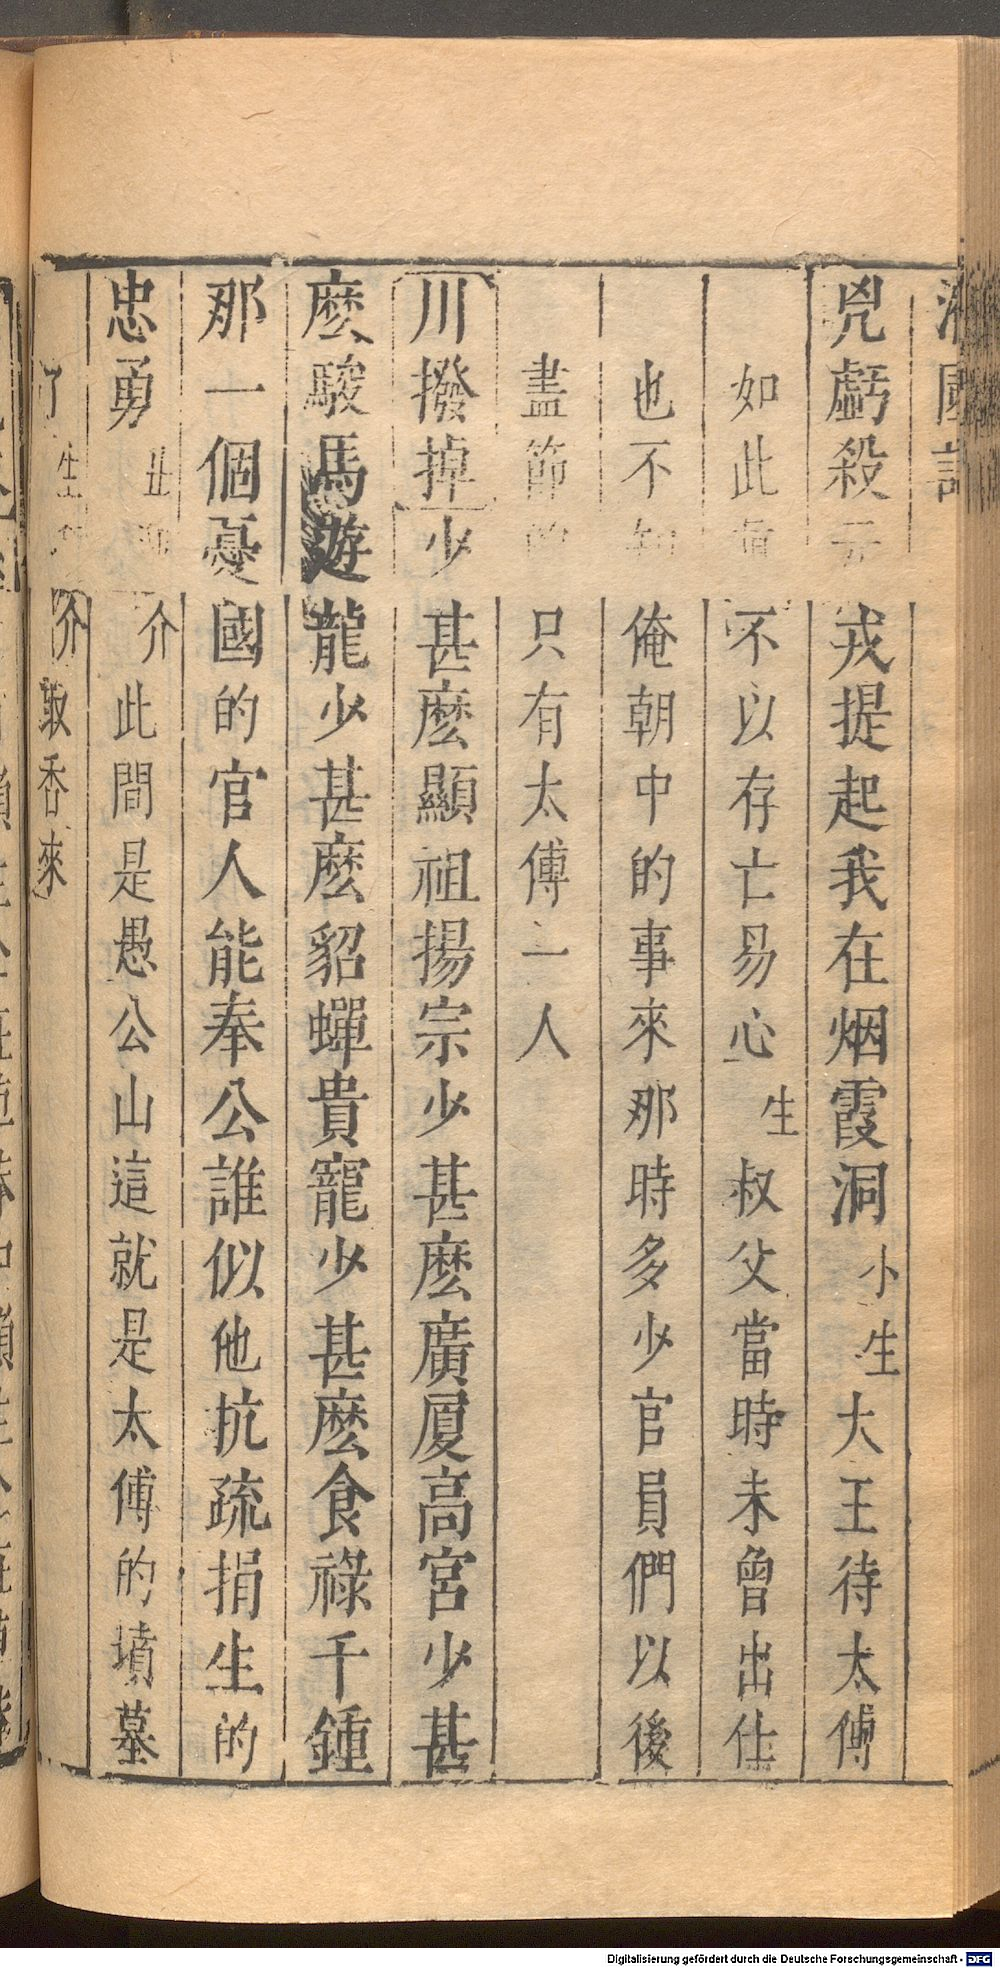 兇虧殺元戎提起我在烟霞洞小生大王待太傅
如此不以存亡易心生叔父當時未曾出仕
也不知俺朝中的事來那時多少官員們以後
盡節的只有太傅一人
川撥掉少甚麽顯祖揚宗少甚麽廣厦高宮少甚
麽駿馬遊龍少甚麽貂蟬貴寵少甚麽食祿千鍾
那一個憂國的官人能奉公誰似他抗疏捐生的
忠勇丑介此間是愚公山這就是太傅的墳墓
了生介取香來
Digitalisierung gefördert durch die Deutsche Forschungsgemeinschaft - DFG